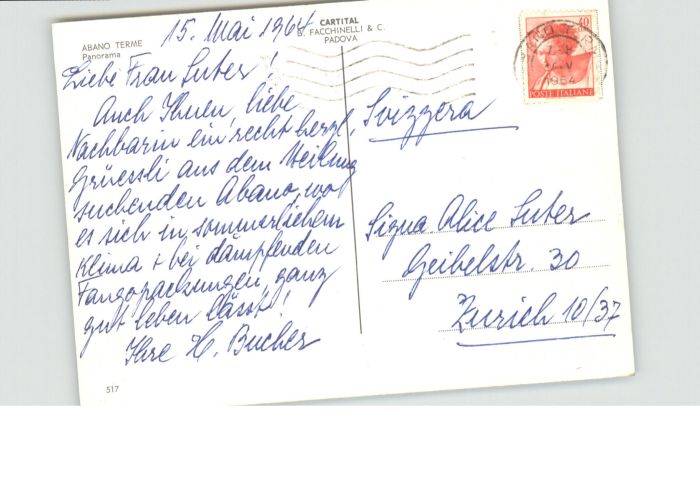 ABANO TERME
Panorama
CARTITAL
FACCHINELLI & C.
PADOVA
15. Mai 1964
Liebe Frau Suter!
Auch Ihnen, liebe
Nachbarin ein recht herzl.
Grüessli aus dem Heilung
suchenden Abano, wo
es sich in sommerlichem
Klima + bei dämpfenden
Fangopackungen, ganz
gut leben lässt!
Ihre H. Bucher
517
40
1964
POSTE ITALIANE
Svizzera
Signa Alice Suter
Geibelstr. 30
Zürich 10/37